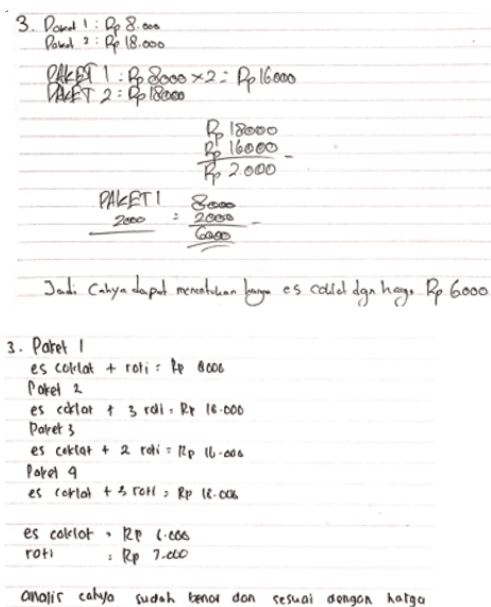 3. Paket 1 : Rp 8.000
Paket 2 : Rp 18.000
PAKET 1 : Rp 8000 x 2 = Rp 16000
PAKET 2 : Rp 18000
Rp 18000
Rp 16000 -
Rp 2.000
PAKET 1 8000
2000 : 2000 -
6000
Jadi Cahya dapat menentukan harga es coklat dgn harga Rp 6000
3. Paket 1
es coklat + roti = Rp 8000
Paket 2
es coklat + 3 roti = Rp 18.000
Paket 3
es coklat + 2 roti = Rp 16.000
Paket 4
es coklat + 3 roti = Rp 18.000
es coklat = Rp 6.000
roti : Rp 2.000
analis cahya sudah benar dan sesuai dengan harga